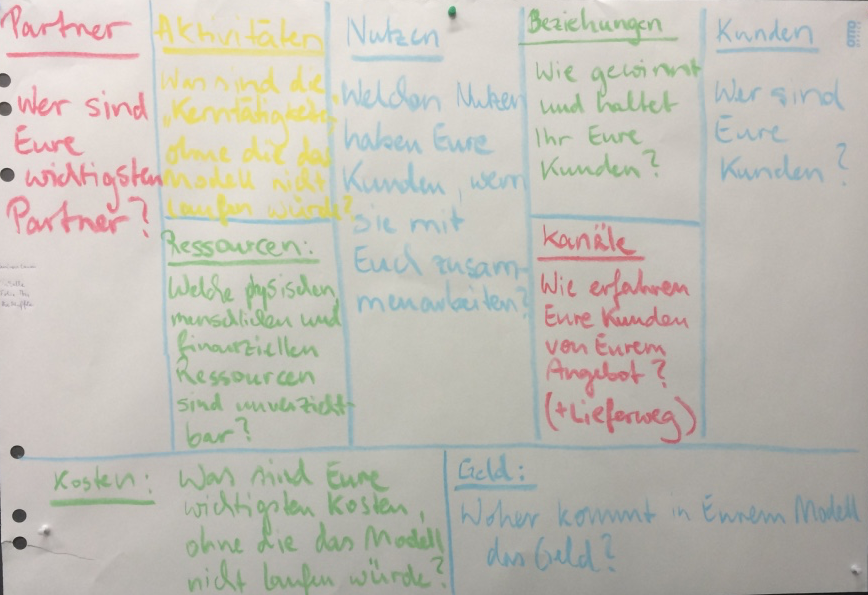 Partner
Wer sind
Eure
wichtigsten
Partner?
Aktivitäten
Was sind die
"Kerntätigkeiten"
ohne die das
Modell nicht
laufen würde?
Ressourcen:
Welche physischen,
menschlichen und
finanziellen
Ressourcen
sind unverzicht-
bar?
Nutzen
Welchen Nutzen
haben Eure
Kunden, wenn
sie mit
Euch zusam-
menarbeiten?
Beziehungen
Wie gewinnt
und haltet
Ihr Eure
Kunden?
Kanäle
Wie erfahren
Eure Kunden
von Eurem
Angebot?
(+Lieferweg)
Kunden
Wer sind
Eure
Kunden?
Kosten: Was sind Eure
wichtigsten Kosten,
ohne die das Modell
nicht laufen würde?
Geld:
Woher kommt in Eurem Modell
das Geld?